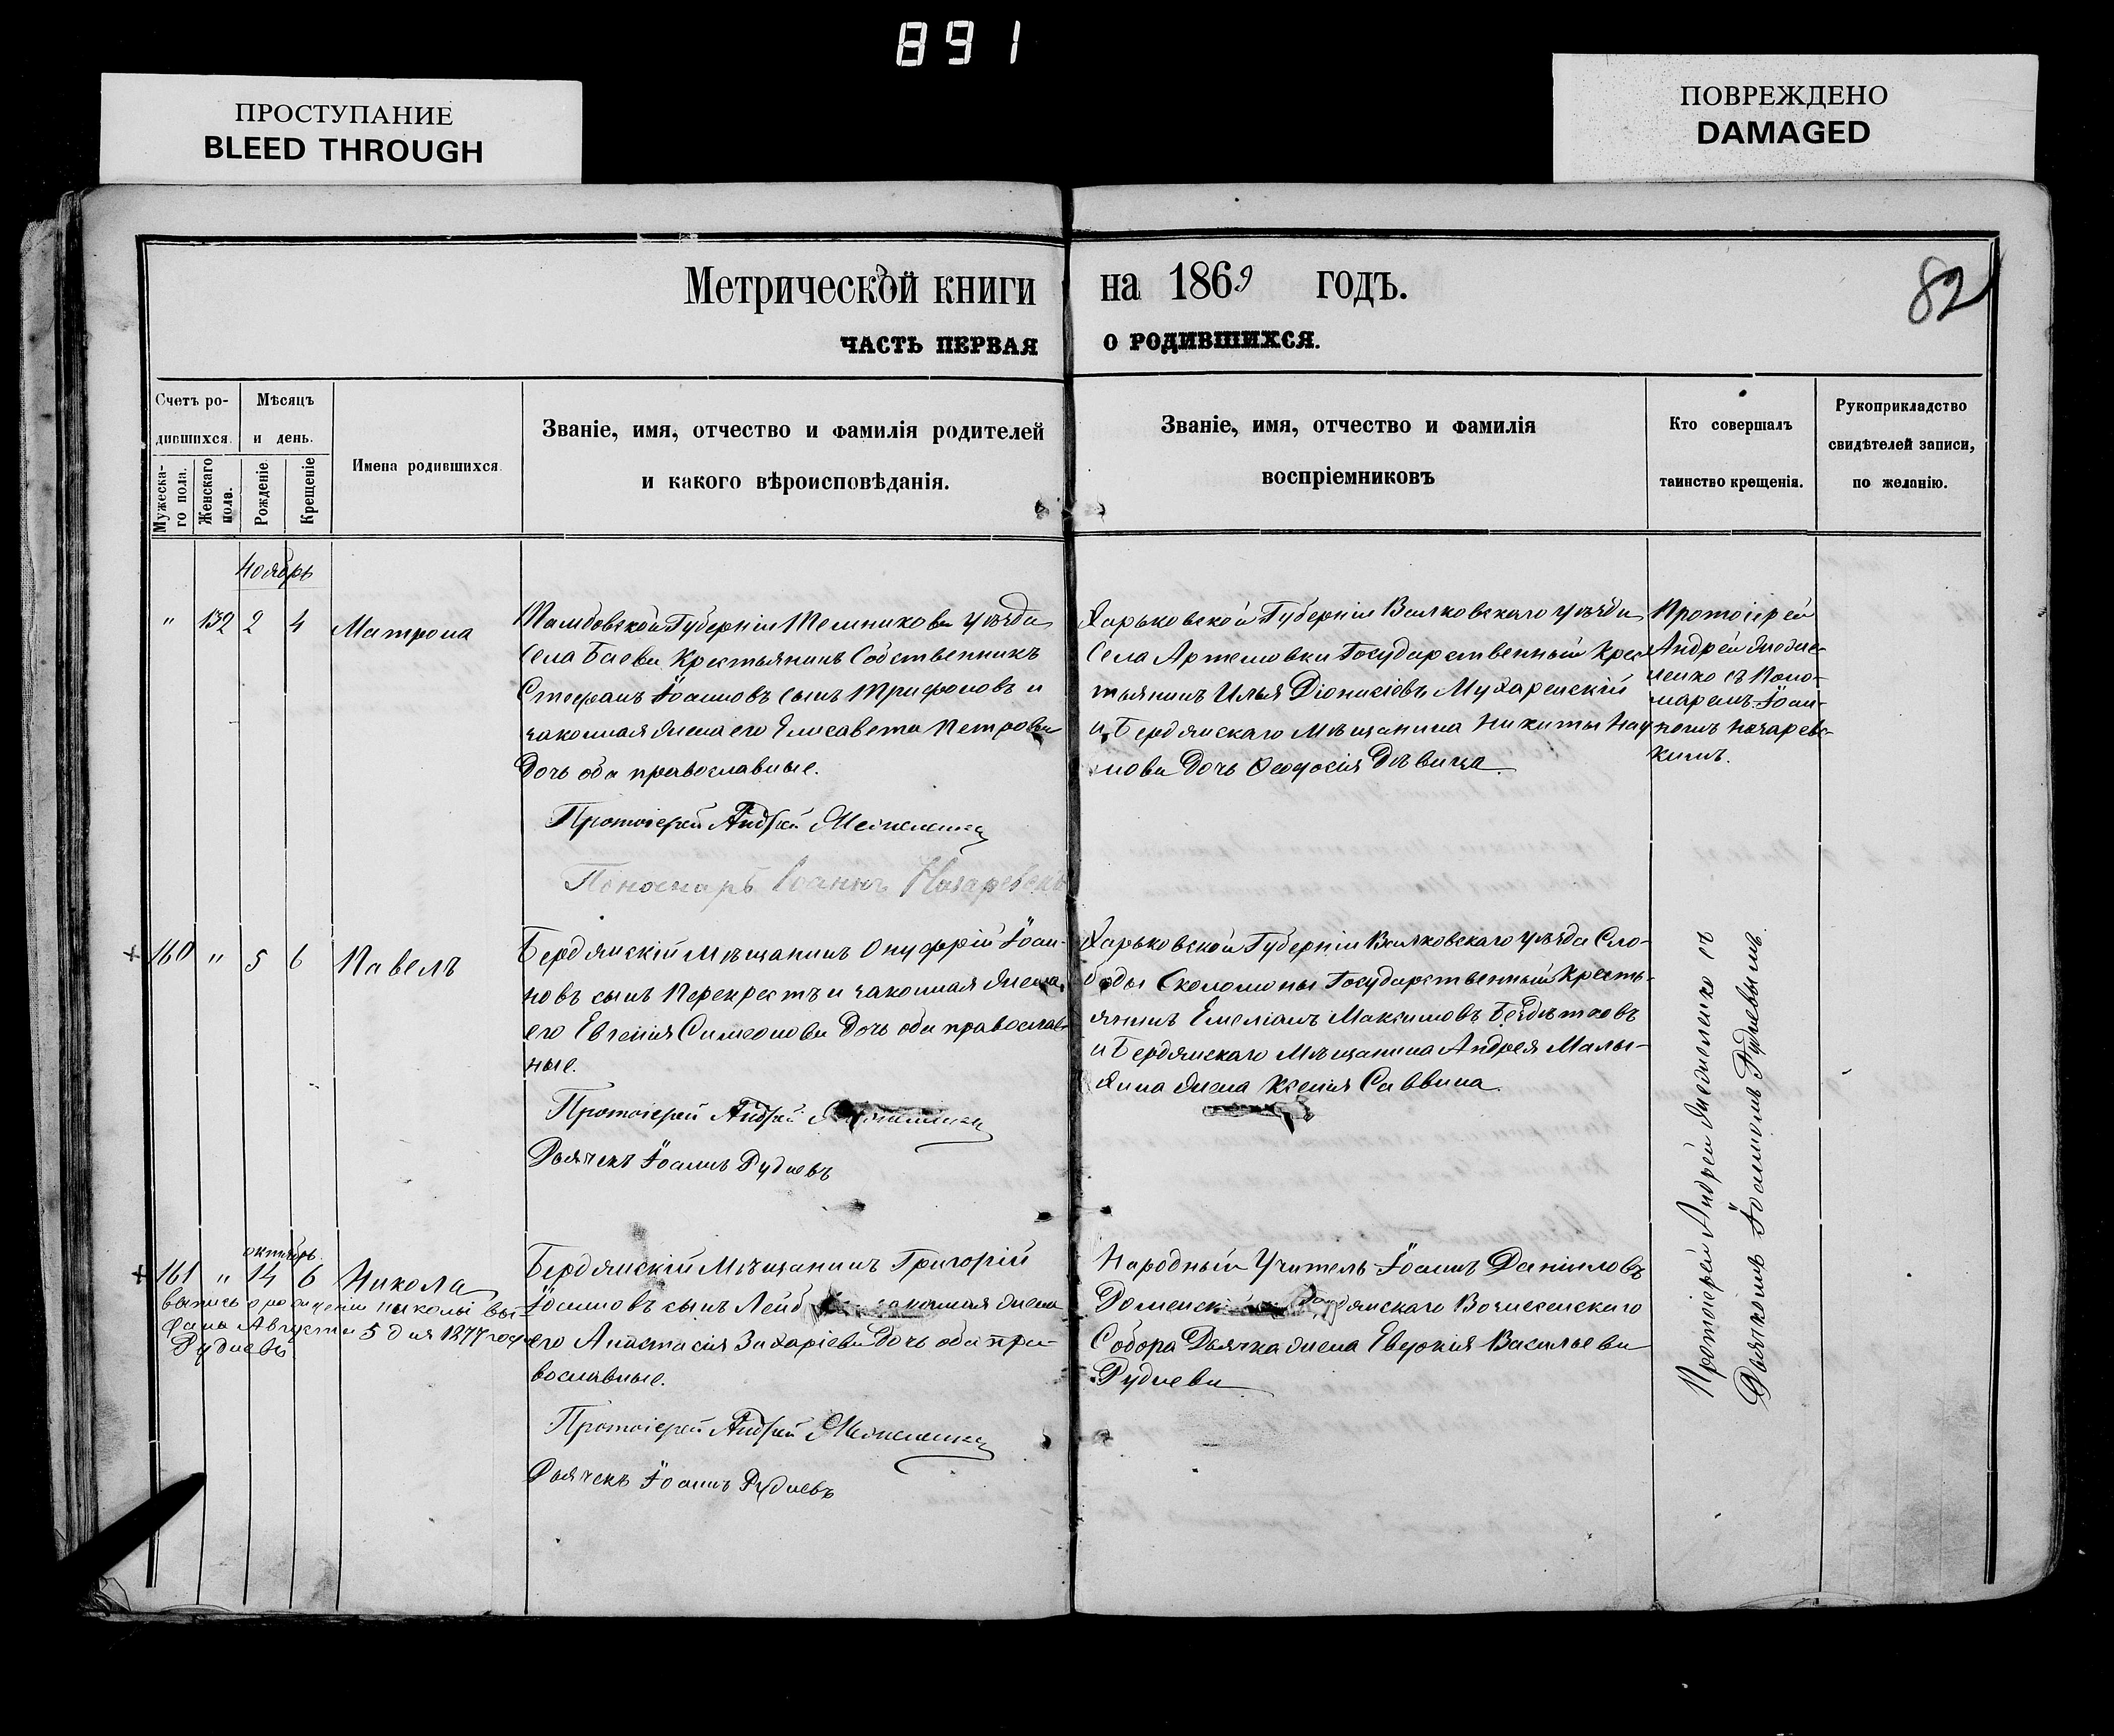 891
ПРОСТУПАНИЕ
BLEED THROUGH
ПОВРЕЖДЕНО
DAMAGED
Метрической книги на 1869 годъ.
82
ЧАСТЬ ПЕРВАЯ О РОДИВШИХСЯ.
Счетъ ро-
дившихся.
Мужеска-
го пола.
Женскаго
пола.
Мѣсяцъ
и день.
Рожденіе
Крещеніе
Имена родившихся.
Званіе, имя, отчество и фамилія родителей
и какого вѣроисповѣданія.
Званіе, имя, отчество и фамилія
воспріемниковъ
Кто совершалъ
таинство крещенія.
Рукоприкладство
свидѣтелей записи,
по желанію.
Ноябрь
" 132 2 4 Матрона
Тамбовской Губерніи Темникова уѣзда
Села Баева Крестьянинъ Собственникъ
Стефанъ Іоанновъ сынъ Трифоновъ и
законная жена его Елисавета Петрова
Дочь оба православные.
Протоіерей Андрей
Пономарь Іоаннъ Назаревскій
Харьковской Губерніи Валковскаго уѣзда
Села Артемовки Государственный Крес-
тьянинъ Илья Діонисіевъ
и Бердянскаго Мѣщанина Никиты Нау-
мова Дочь Ѳеодосія Дѣвица.
Протоіерей
Андрей
ненко съ Поно-
маремъ Іоан-
номъ Назаревс-
кимъ.
+ 160 " 5 6 Павелъ
Бердянскій Мѣщанинъ Онуфрій Іоан-
новъ сынъ Перекрестъ и законная жена
его Евгенія Симеонова Дочь оба православ-
ные.
Протоіерей Андрей
Дьячекъ Іоаннъ Рудневъ
Харьковской Губерніи Валковскаго уѣзда Сло-
боды Государственный Кресть-
янинъ Емеліанъ Максимовъ
и Бердянскаго Мѣщанина Андрея Малы-
жена Ксенія Саввина.
октябрь
+ 161 " 14 6 Никола
выпись о рожденіи Николы вы-
дана Августа 5 дня 1877 года
Рудневъ
Бердянскій Мѣщанинъ Григорій
Іоанновъ сынъ законная жена
его Анастасія Захаріева Дочь оба пра-
вославные.
Протоіерей Андрей
Дьячекъ Іоаннъ Рудневъ
Народный Учитель Іоаннъ Даніиловъ
Вознесенскаго
Собора Дьячка жена Евдокія Васильева
Руднева
Протоіерей Андрей съ
Дьячкомъ Іоанномъ Рудневымъ.